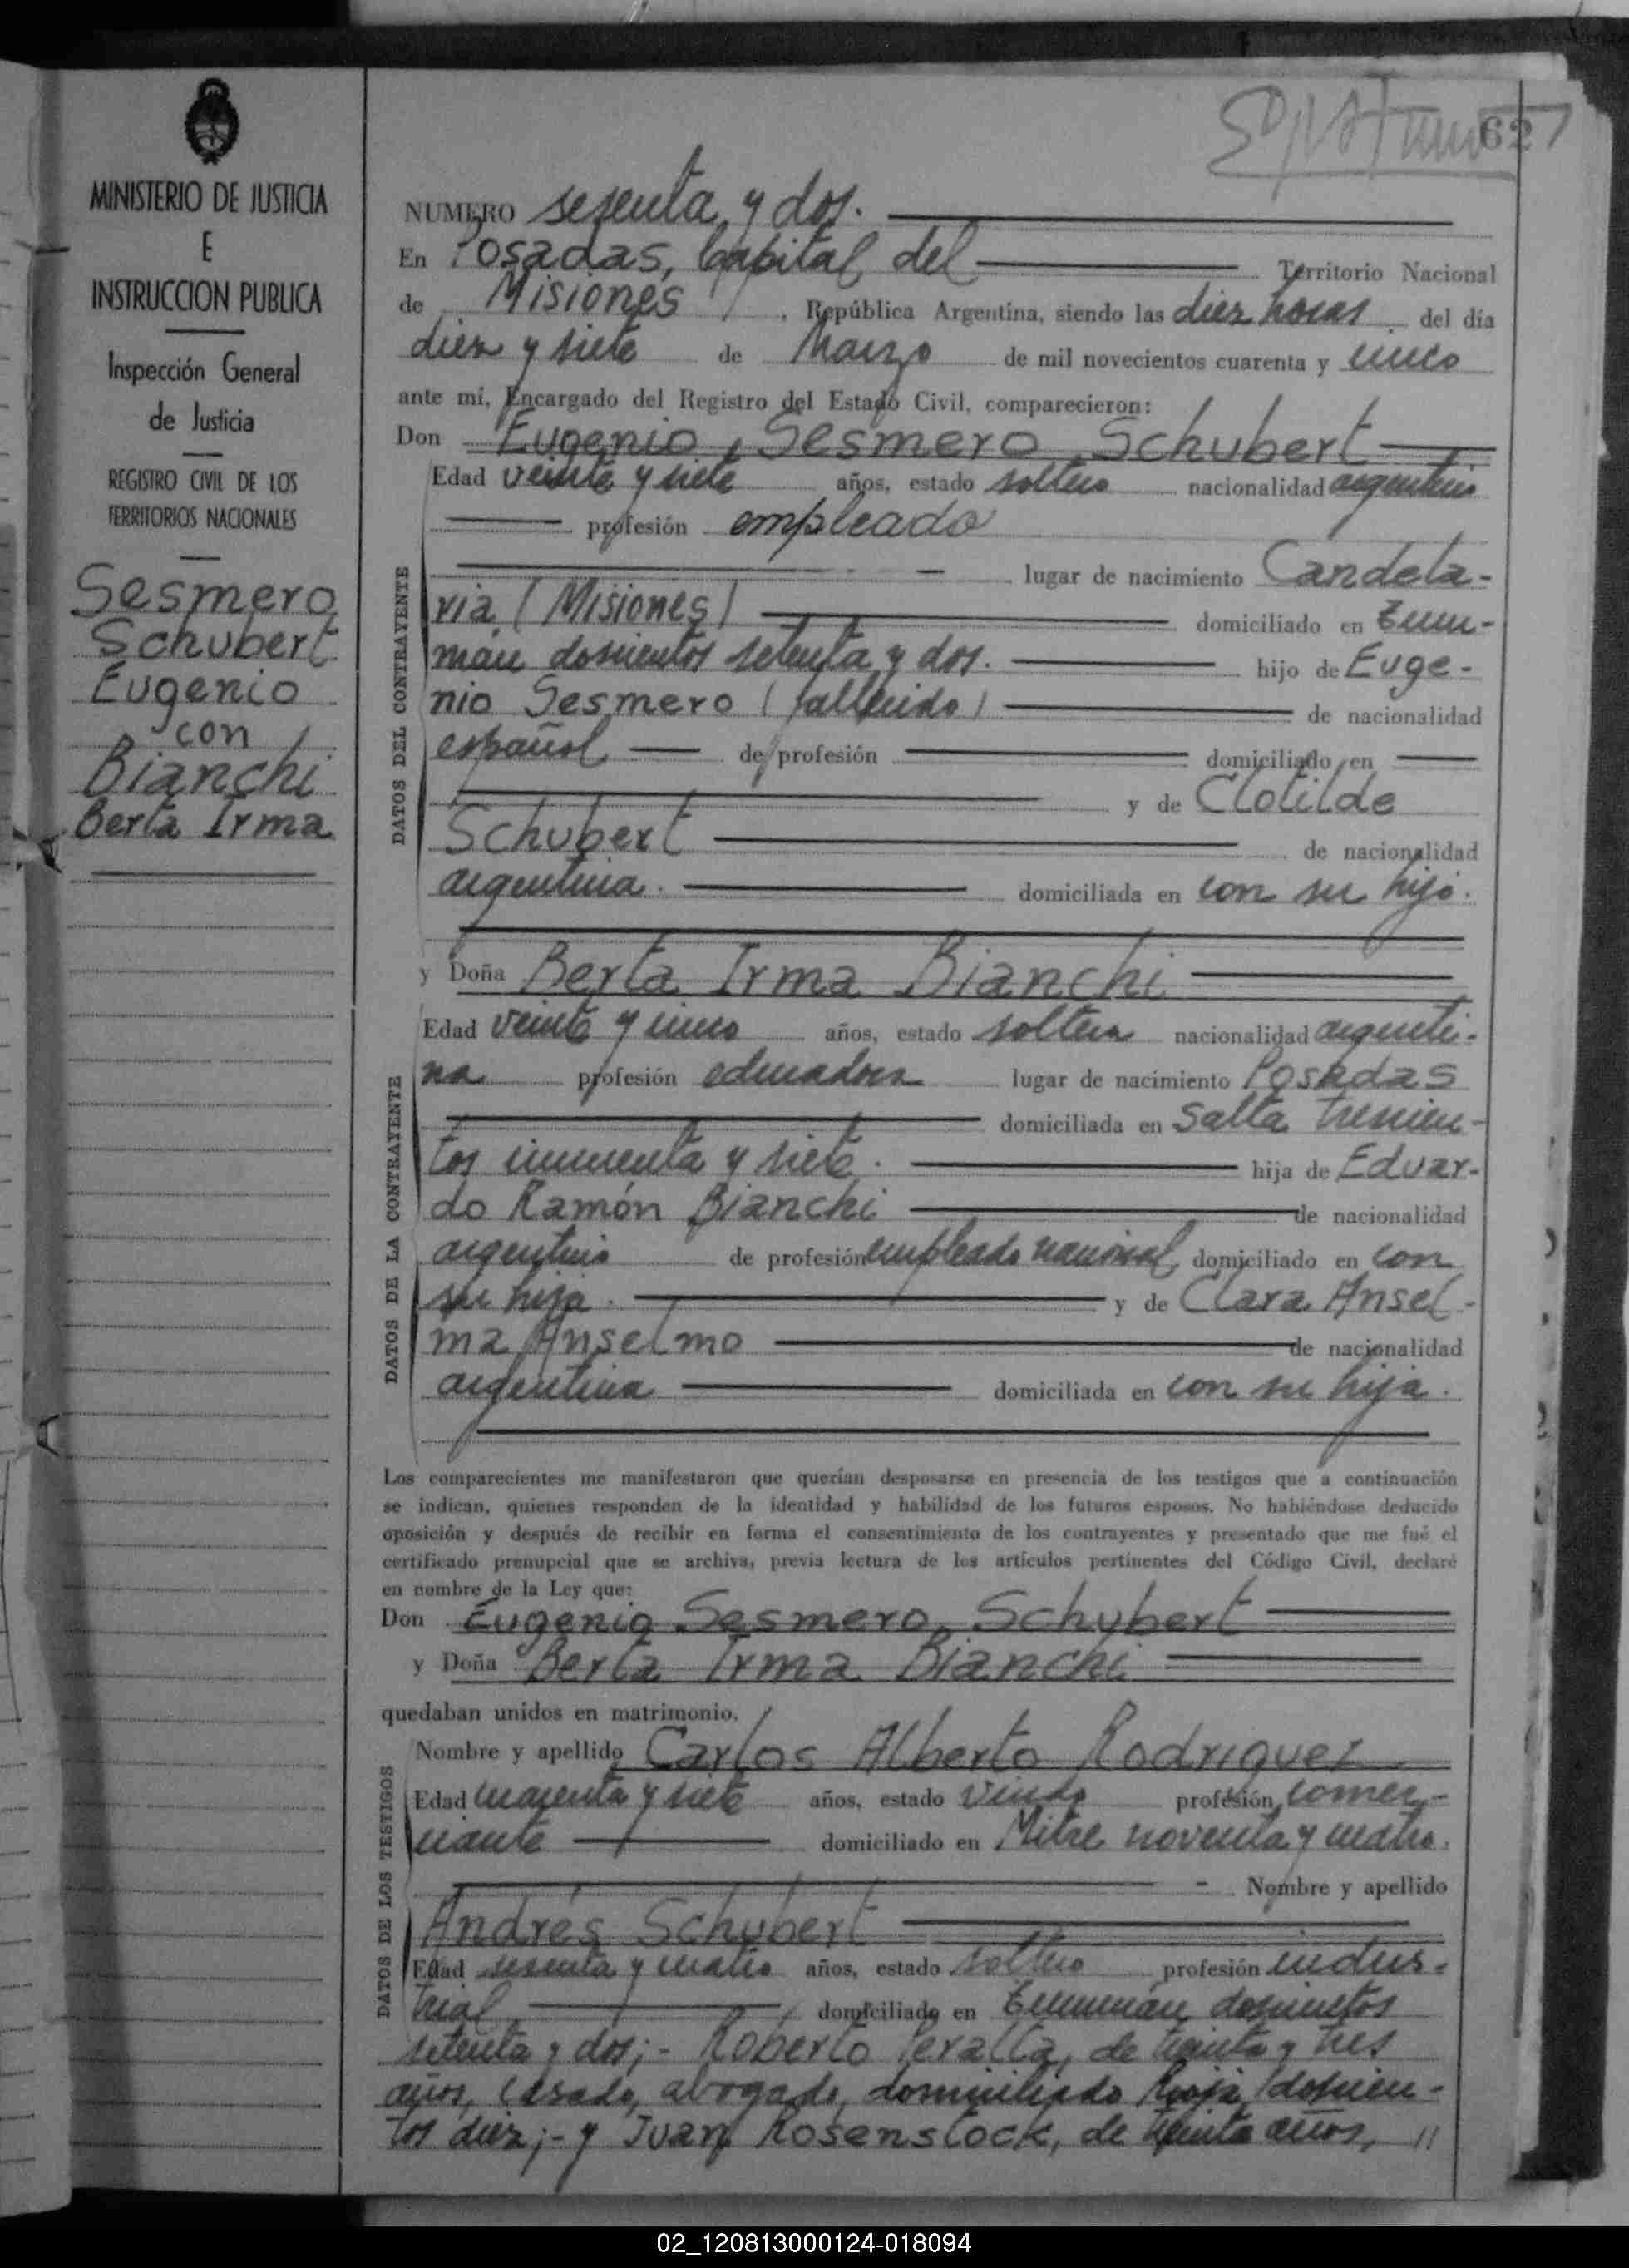 MINISTERIO DE JUSTICIA
E
INSTRUCCION PUBLICA
Inspección General
de Justicia
REGISTRO CIVIL DE LOS
TERRITORIOS NACIONALES
Sesmero
Schubert
Eugenio
con
Bianchi
Berta Irma
62
NUMERO sesenta y dos.
En Posadas, Capital del Territorio Nacional
de Misiones, República Argentina, siendo las diez horas del día
diez y siete de Marzo de mil novecientos cuarenta y cinco
ante mí, Encargado del Registro del Estado Civil, comparecieron:
Don Eugenio Sesmero Schubert
Edad veinte y siete años, estado soltero nacionalidad argentino
profesión empleado
lugar de nacimiento Candela-
ria (Misiones) domiciliado en Tucu-
mán doscientos setenta y dos. hijo de Euge-
nio Sesmero (fallecido) de nacionalidad
español de profesión domiciliado en
y de Clotilde
Schubert de nacionalidad
argentina. domiciliada en con su hijo.
DATOS DEL CONTRAYENTE
y Doña Berta Irma Bianchi
Edad veinte y cinco años, estado soltera nacionalidad argenti-
na profesión educadora lugar de nacimiento Posadas
domiciliada en Salta trescien-
tos cincuenta y siete. hija de Eduar-
do Ramón Bianchi de nacionalidad
argentino de profesión empleado nacional domiciliado en con
su hija. y de Clara Ansel-
ma Anselmo de nacionalidad
argentina domiciliada en con su hija.
DATOS DE LA CONTRAYENTE
Los comparecientes me manifestaron que querían desposarse en presencia de los testigos que a continuación
se indican, quienes responden de la identidad y habilidad de los futuros esposos. No habiéndose deducido
oposición y después de recibir en forma el consentimiento de los contrayentes y presentado que me fué el
certificado prenupcial que se archiva, previa lectura de los artículos pertinentes del Código Civil, declaré
en nombre de la Ley que:
Don Eugenio Sesmero Schubert
y Doña Berta Irma Bianchi
quedaban unidos en matrimonio.
Nombre y apellido Carlos Alberto Rodriguez
Edad cuarenta y siete años, estado viudo profesión comer-
ciante domiciliado en Mitre noventa y cuatro.
Nombre y apellido
Andrés Schubert
Edad sesenta y cuatro años, estado soltero profesión indus-
trial domiciliado en Tucumán doscientos
setenta y dos;- Roberto Peralta, de treinta y tres
años, casado, abogado, domiciliado Rioja doscien-
tos diez;- y Juan Rosenstock, de treinta años, //
DATOS DE LOS TESTIGOS
02_120813000124-018094